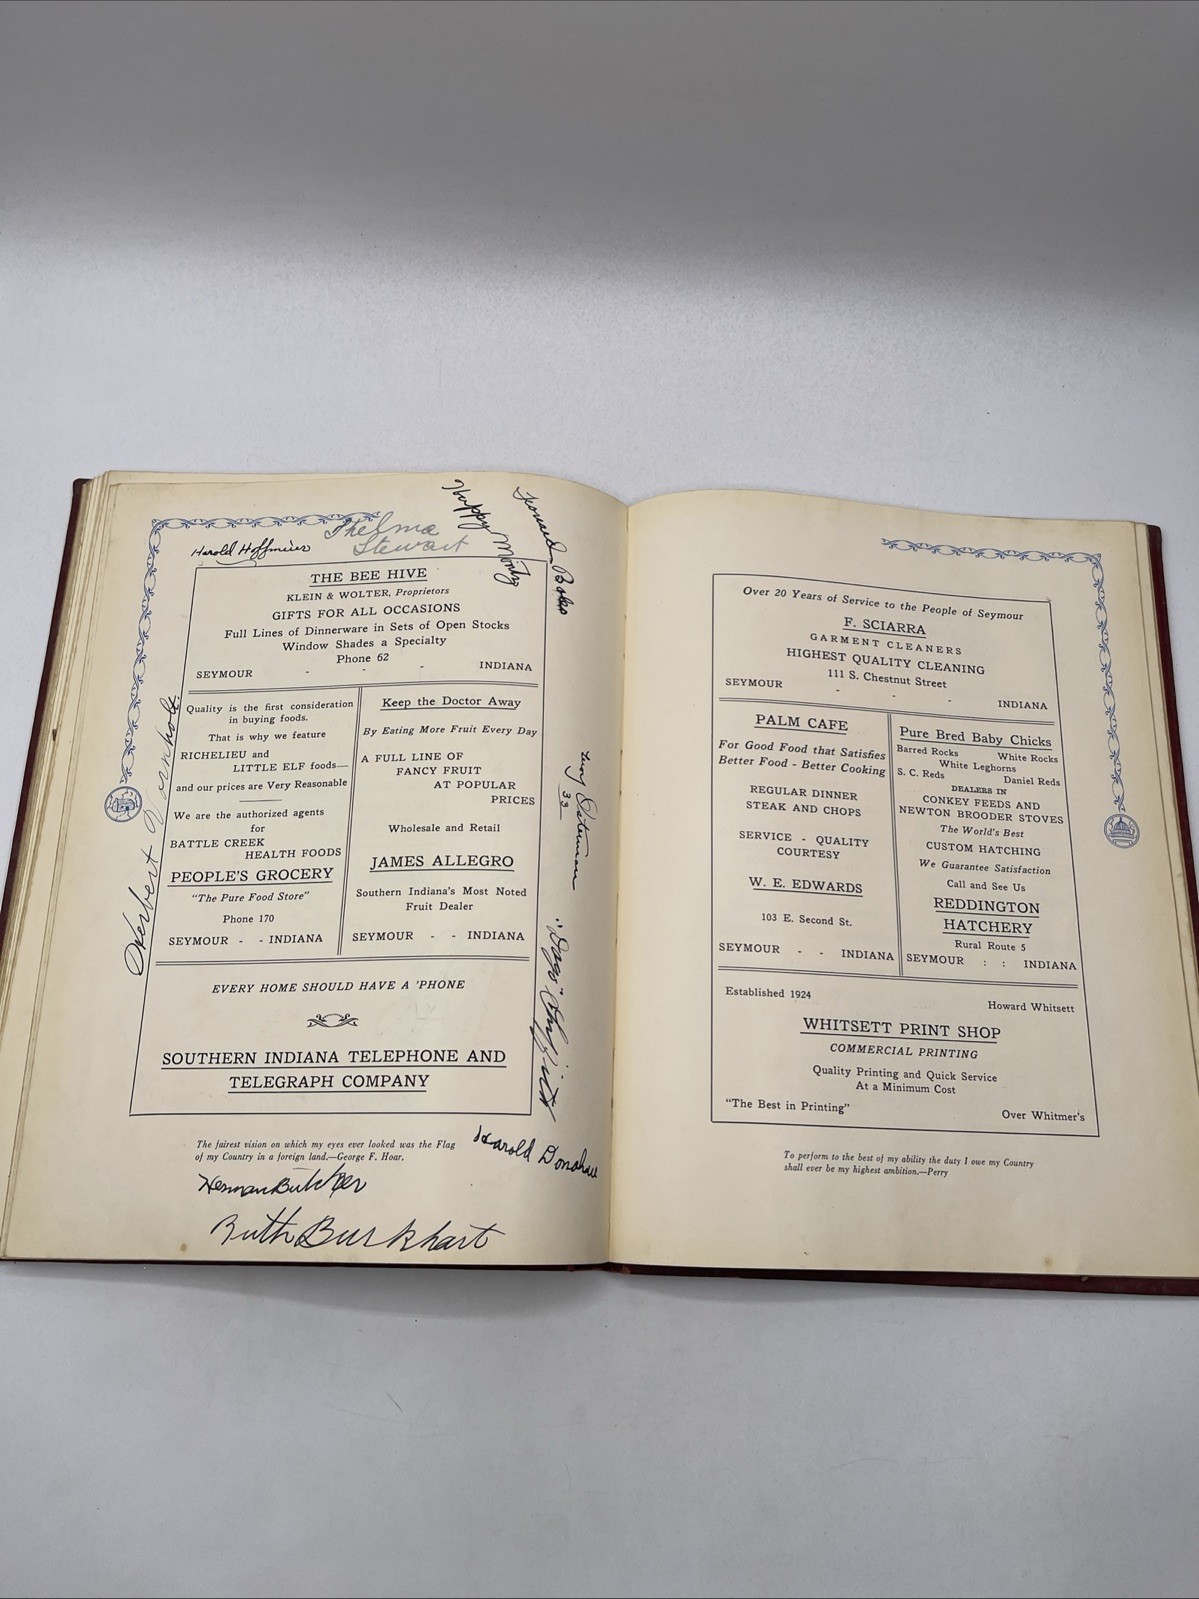 Thelma
Stewart
Harold Hoffmeier
Happy
Boles
THE BEE HIVE
KLEIN & WOLTER, Proprietors
GIFTS FOR ALL OCCASIONS
Full Lines of Dinnerware in Sets of Open Stocks
Window Shades a Specialty
Phone 62
SEYMOUR - - - INDIANA
Quality is the first consideration
in buying foods.
That is why we feature
RICHELIEU and
LITTLE ELF foods—
and our prices are Very Reasonable
We are the authorized agents
for
BATTLE CREEK
HEALTH FOODS
PEOPLE'S GROCERY
"The Pure Food Store"
Phone 170
SEYMOUR - - INDIANA
Keep the Doctor Away
By Eating More Fruit Every Day
A FULL LINE OF
FANCY FRUIT
AT POPULAR
PRICES
Wholesale and Retail
JAMES ALLEGRO
Southern Indiana's Most Noted
Fruit Dealer
SEYMOUR - - INDIANA
EVERY HOME SHOULD HAVE A 'PHONE
SOUTHERN INDIANA TELEPHONE AND
TELEGRAPH COMPANY
Herbert
Osterman
33
Harold Donahue
The fairest vision on which my eyes ever looked was the Flag
of my Country in a foreign land.—George F. Hoar.
Herman Butcher
Ruth Burkhart
Over 20 Years of Service to the People of Seymour
F. SCIARRA
GARMENT CLEANERS
HIGHEST QUALITY CLEANING
111 S. Chestnut Street
SEYMOUR - - - INDIANA
PALM CAFE
For Good Food that Satisfies
Better Food - Better Cooking
REGULAR DINNER
STEAK AND CHOPS
SERVICE - QUALITY
COURTESY
W. E. EDWARDS
103 E. Second St.
SEYMOUR - - INDIANA
Pure Bred Baby Chicks
Barred Rocks White Rocks
White Leghorns
S. C. Reds Daniel Reds
DEALERS IN
CONKEY FEEDS AND
NEWTON BROODER STOVES
The World's Best
CUSTOM HATCHING
We Guarantee Satisfaction
Call and See Us
REDDINGTON
HATCHERY
Rural Route 5
SEYMOUR : : INDIANA
Established 1924
Howard Whitsett
WHITSETT PRINT SHOP
COMMERCIAL PRINTING
Quality Printing and Quick Service
At a Minimum Cost
"The Best in Printing"
Over Whitmer's
To perform to the best of my ability the duty I owe my Country
shall ever be my highest ambition.—Perry